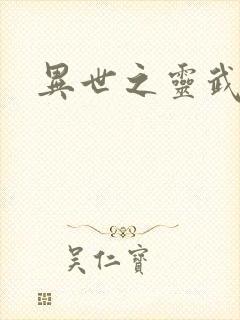 異世之靈武
吴仁寶